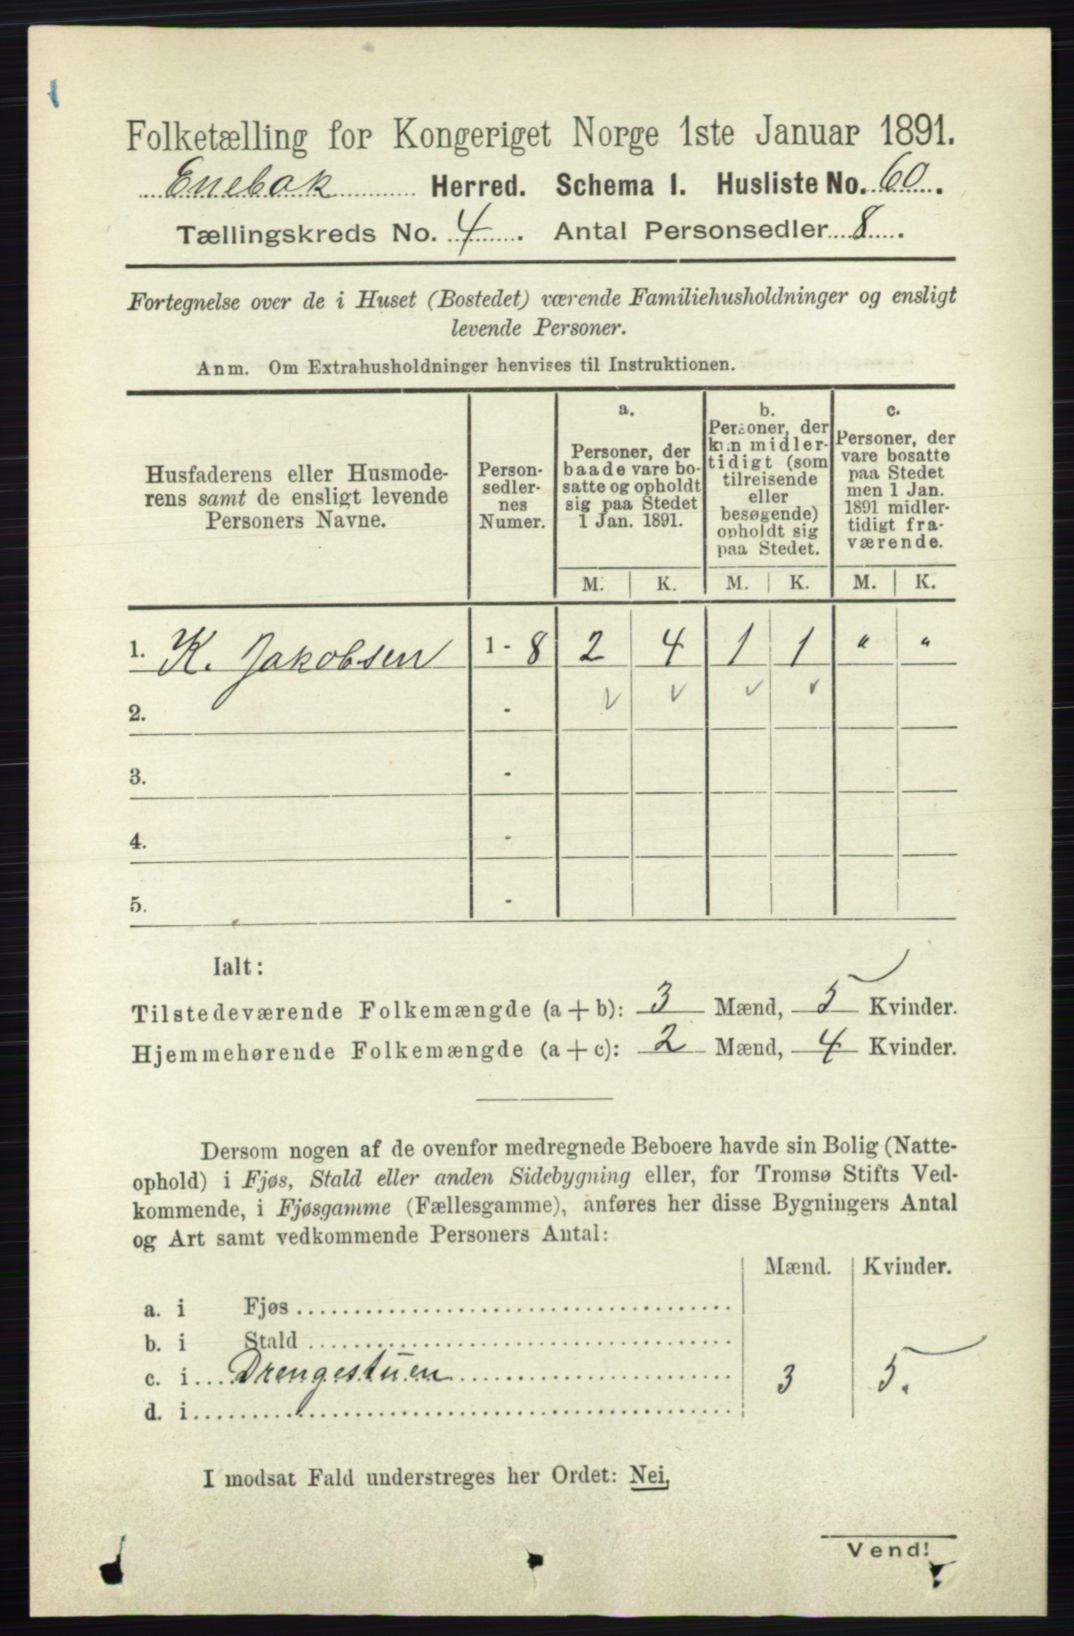 Folketælling for Kongeriget Norge 1ste Januar 1891.
Enebak Herred. Schema I. Husliste No. 60.
Tællingskreds No. 4. Antal Personsedler 8.
Fortegnelse over de i Huset (Bostedet) værende Familiehusholdninger og ensligt
levende Personer.
Anm. Om Extrahusholdninger henvises til Instruktionen.
Husfaderens eller Husmode-
rens samt de ensligt levende
Personers Navne.
Person-
sedler-
nes
Numer.
a.
Personer, der
baade vare bo-
satte og opholdt
sig paa Stedet
1 Jan. 1891.
b.
Personer, der
kun midler-
tidigt (som
tilreisende
eller
besøgende)
opholdt sig
paa Stedet.
c.
Personer, der
vare bosatte
paa Stedet
men 1 Jan.
1891 midler-
tidigt fra-
værende.
M. K. M. K. M. K.
1. K. Jakobsen 1 - 8 2 4 1 1 " "
2. - ✓ ✓ ✓ ✓
3. -
4. -
5. -
Ialt:
Tilstedeværende Folkemængde (a + b): 3 Mænd, 5 Kvinder.
Hjemmehørende Folkemængde (a + c): 2 Mænd, 4 Kvinder.
Dersom nogen af de ovenfor medregnede Beboere havde sin Bolig (Natte-
ophold) i Fjøs, Stald eller anden Sidebygning eller, for Tromsø Stifts Ved-
kommende, i Fjøsgamme (Fællesgamme), anføres her disse Bygningers Antal
og Art samt vedkommende Personers Antal:
Mænd. Kvinder.
a. i Fjøs
b. i Stald
c. i Drengestuen 3 5.
d. i
I modsat Fald understreges her Ordet: Nei.
Vend!